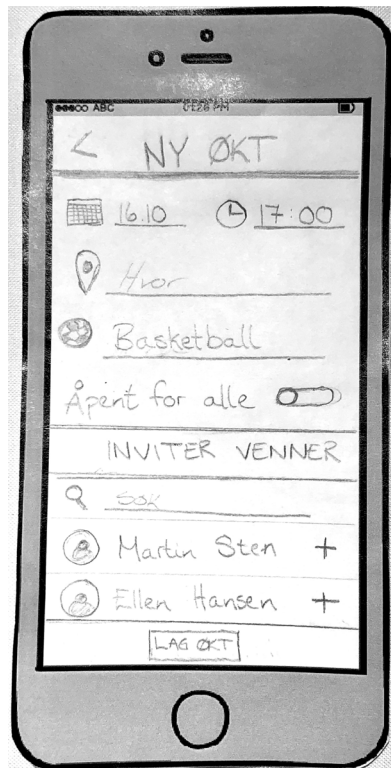 ABC 01:26 PM
< NY ØKT
16.10 17:00
Hvor
Basketball
Åpent for alle
INVITER VENNER
Søk
Martin Sten +
Ellen Hansen +
LAG ØKT